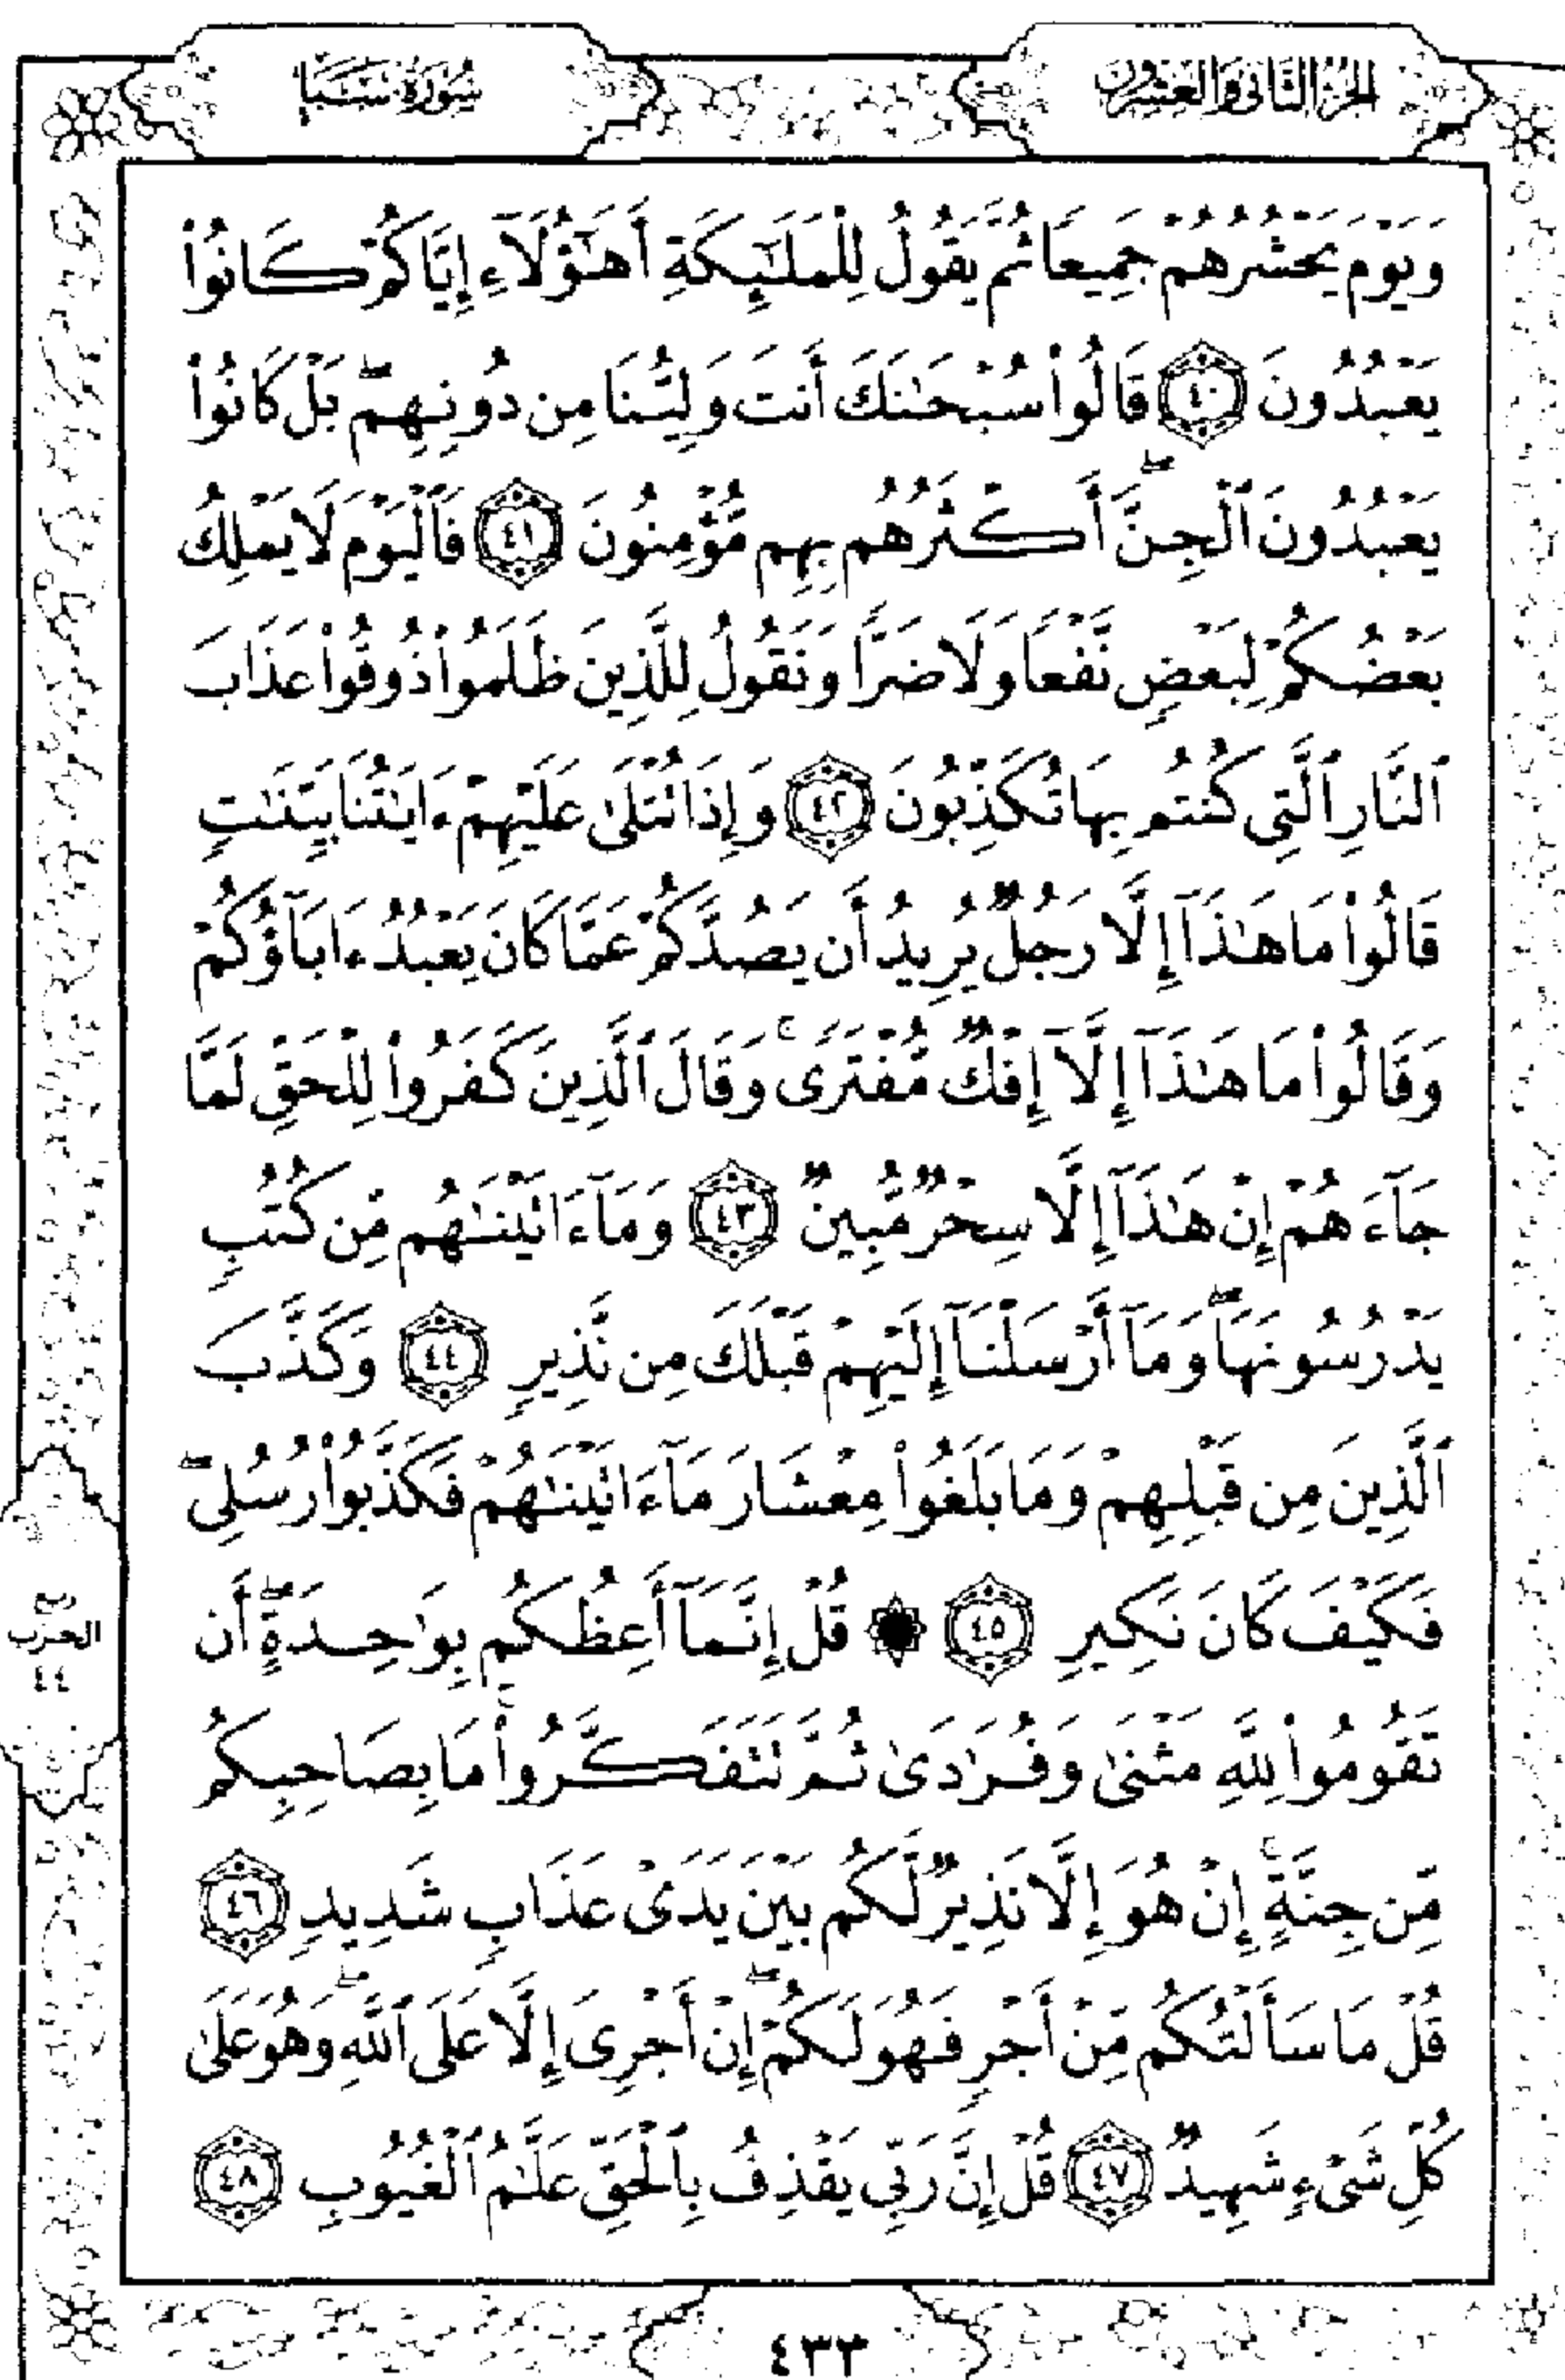 الجزء الثاني والعشرون
سورة سبأ
وَيَوْمَ يَحْشُرُهُمْ جَمِيعًا ثُمَّ يَقُولُ لِلْمَلَٰٓئِكَةِ أَهَٰٓؤُلَآءِ إِيَّاكُمْ كَانُوا۟
يَعْبُدُونَ ٤٠ قَالُوا۟ سُبْحَٰنَكَ أَنتَ وَلِيُّنَا مِن دُونِهِم ۖ بَلْ كَانُوا۟
يَعْبُدُونَ ٱلْجِنَّ ۖ أَكْثَرُهُم بِهِم مُّؤْمِنُونَ ٤١ فَٱلْيَوْمَ لَا يَمْلِكُ
بَعْضُكُمْ لِبَعْضٍ نَّفْعًا وَلَا ضَرًّا وَنَقُولُ لِلَّذِينَ ظَلَمُوا۟ ذُوقُوا۟ عَذَابَ
ٱلنَّارِ ٱلَّتِى كُنتُم بِهَا تُكَذِّبُونَ ٤٢ وَإِذَا تُتْلَىٰ عَلَيْهِمْ ءَايَٰتُنَا بَيِّنَٰتٍ
قَالُوا۟ مَا هَٰذَآ إِلَّا رَجُلٌ يُرِيدُ أَن يَصُدَّكُمْ عَمَّا كَانَ يَعْبُدُ ءَابَآؤُكُمْ
وَقَالُوا۟ مَا هَٰذَآ إِلَّآ إِفْكٌ مُّفْتَرًى ۚ وَقَالَ ٱلَّذِينَ كَفَرُوا۟ لِلْحَقِّ لَمَّا
جَآءَهُمْ إِنْ هَٰذَآ إِلَّا سِحْرٌ مُّبِينٌ ٤٣ وَمَآ ءَاتَيْنَٰهُم مِّن كُتُبٍ
يَدْرُسُونَهَا ۖ وَمَآ أَرْسَلْنَآ إِلَيْهِمْ قَبْلَكَ مِن نَّذِيرٍ ٤٤ وَكَذَّبَ
ٱلَّذِينَ مِن قَبْلِهِمْ وَمَا بَلَغُوا۟ مِعْشَارَ مَآ ءَاتَيْنَٰهُمْ فَكَذَّبُوا۟ رُسُلِى ۖ
فَكَيْفَ كَانَ نَكِيرِ ٤٥ ۞ قُلْ إِنَّمَآ أَعِظُكُم بِوَٰحِدَةٍ ۖ أَن
تَقُومُوا۟ لِلَّهِ مَثْنَىٰ وَفُرَٰدَىٰ ثُمَّ تَتَفَكَّرُوا۟ ۚ مَا بِصَاحِبِكُم
مِّن جِنَّةٍ ۚ إِنْ هُوَ إِلَّا نَذِيرٌ لَّكُم بَيْنَ يَدَىْ عَذَابٍ شَدِيدٍ ٤٦
قُلْ مَا سَأَلْتُكُم مِّنْ أَجْرٍ فَهُوَ لَكُمْ ۖ إِنْ أَجْرِىَ إِلَّا عَلَى ٱللَّهِ ۖ وَهُوَ عَلَىٰ
كُلِّ شَىْءٍ شَهِيدٌ ٤٧ قُلْ إِنَّ رَبِّى يَقْذِفُ بِٱلْحَقِّ عَلَّٰمُ ٱلْغُيُوبِ ٤٨
الحزب
٤٤
٤٣٣